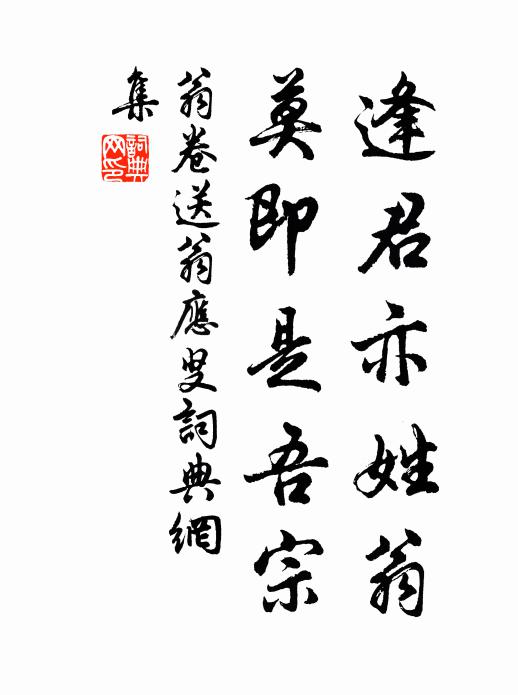 逢君亦姓翁
莫即是吾宗
翁卷送翁應叟詞典網
集
詞典網印